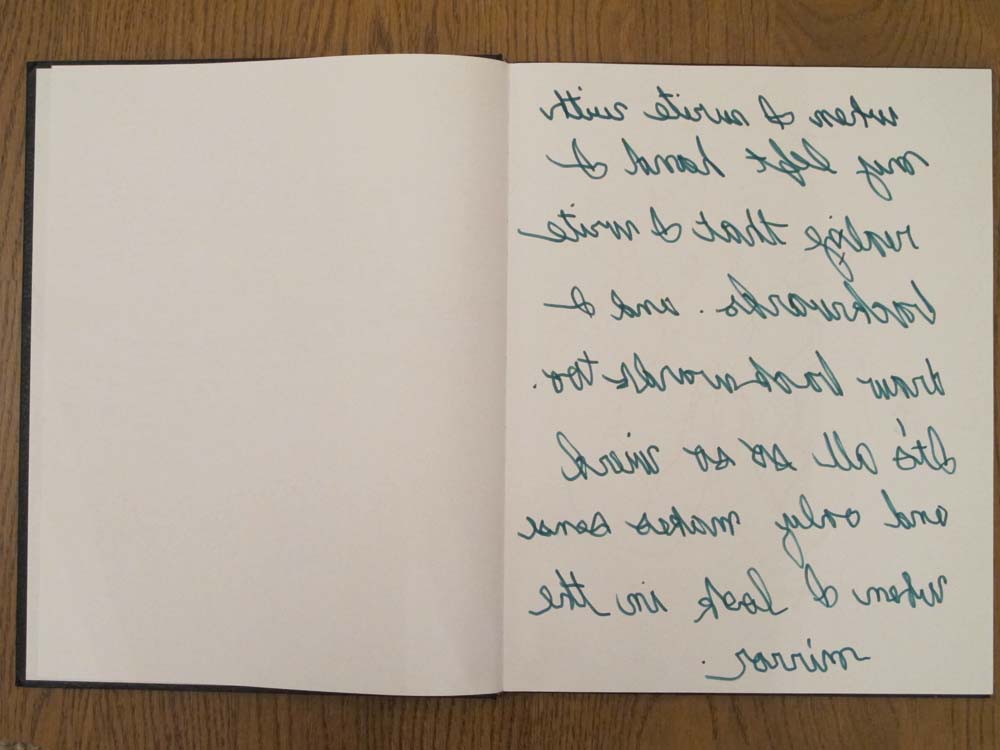 when I write with
my left hand I
realize that I write
backwards. and I
draw backwards too.
It's all so so wierd
and only makes sense
when I look in the
mirror.